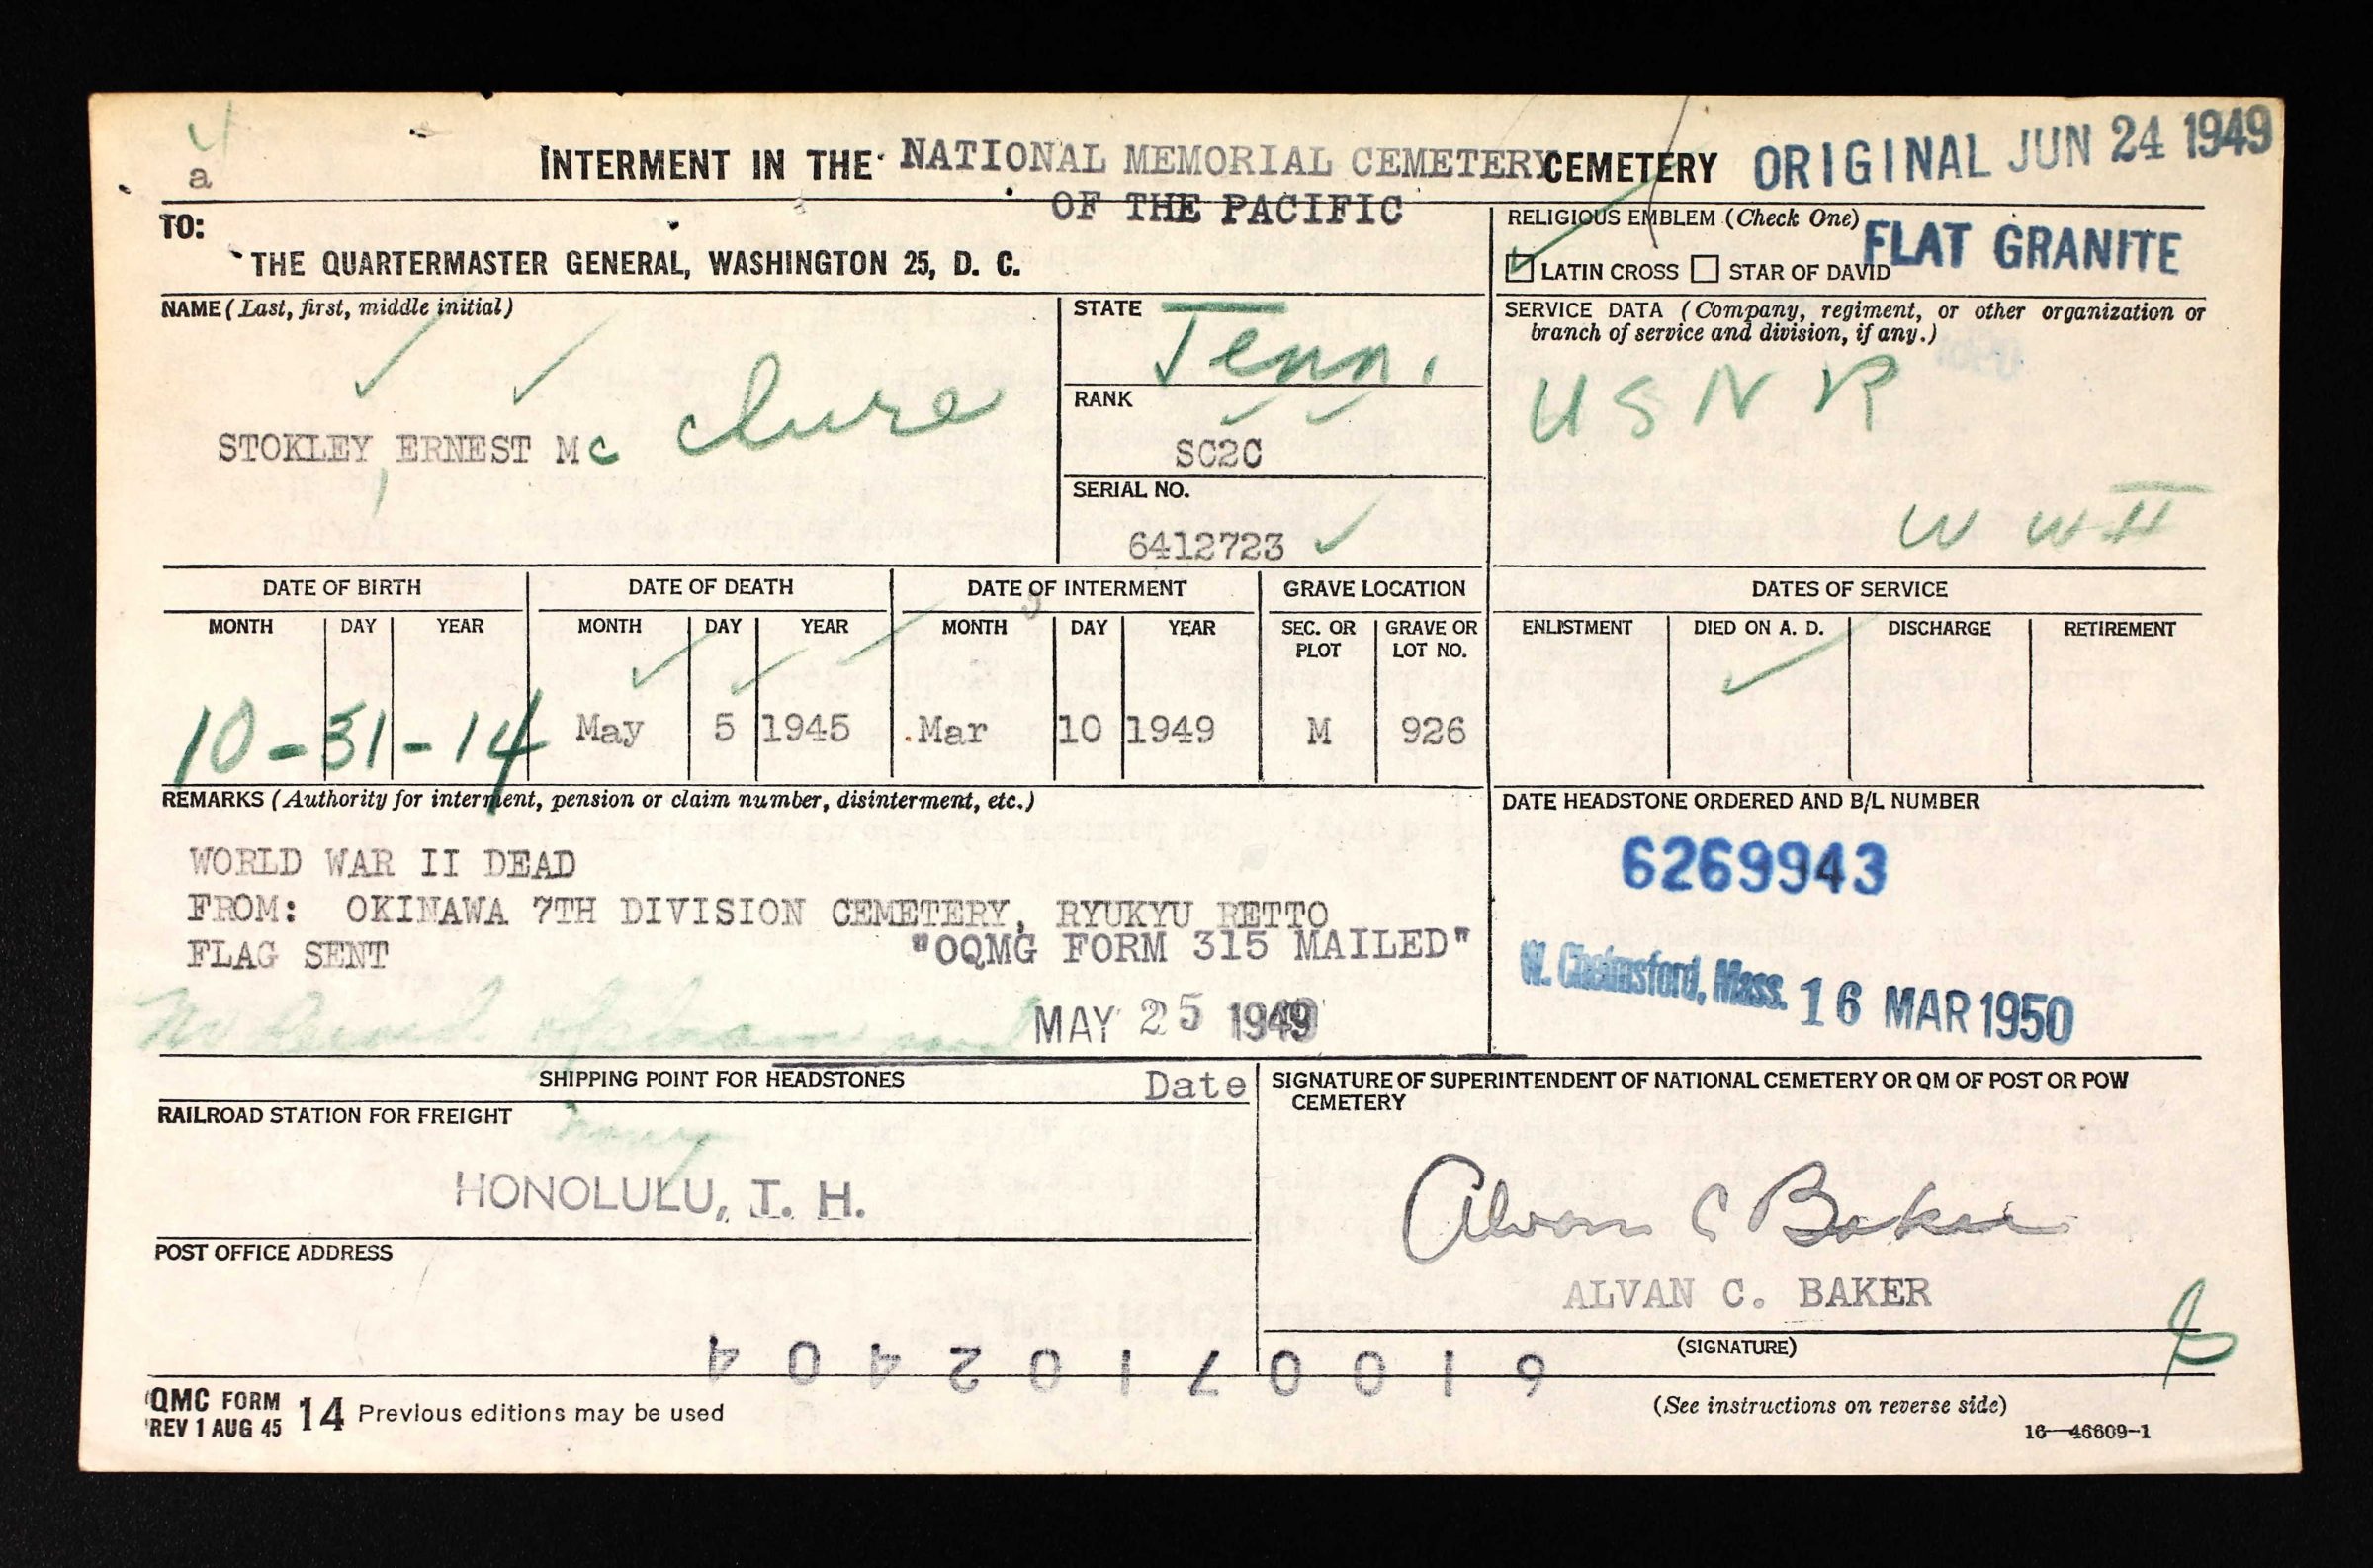 4
a
INTERMENT IN THE NATIONAL MEMORIAL CEMETERY CEMETERY ORIGINAL JUN 24 1949
OF THE PACIFIC
TO:
THE QUARTERMASTER GENERAL, WASHINGTON 25, D. C.
RELIGIOUS EMBLEM (Check One)
FLAT GRANITE
LATIN CROSS STAR OF DAVID
NAME (Last, first, middle initial)
STOKLEY, ERNEST Mc Clure
STATE
Tenn.
RANK
SC2C
SERIAL NO.
6412723
SERVICE DATA (Company, regiment, or other organization or
branch of service and division, if any.)
USNR
WWII
DATE OF BIRTH DATE OF DEATH DATE OF INTERMENT GRAVE LOCATION DATES OF SERVICE
MONTH DAY YEAR MONTH DAY YEAR MONTH DAY YEAR SEC. OR PLOT GRAVE OR LOT NO. ENLISTMENT DIED ON A. D. DISCHARGE RETIREMENT
10-31-14 May 5 1945 Mar 10 1949 M 926
REMARKS (Authority for interment, pension or claim number, disinterment, etc.)
WORLD WAR II DEAD
FROM: OKINAWA 7TH DIVISION CEMETERY, RYUKYU RETTO
FLAG SENT "OQMG FORM 315 MAILED"
No Record of
MAY 25 1949
DATE HEADSTONE ORDERED AND B/L NUMBER
6269943
W. Chelmsford, Mass. 16 MAR 1950
SHIPPING POINT FOR HEADSTONES Date
RAILROAD STATION FOR FREIGHT
HONOLULU, T. H.
POST OFFICE ADDRESS
SIGNATURE OF SUPERINTENDENT OF NATIONAL CEMETERY OR QM OF POST OR POW
CEMETERY
Alvan C Baker
ALVAN C. BAKER
(SIGNATURE)
61007102404
QMC FORM 14 Previous editions may be used
REV 1 AUG 45
(See instructions on reverse side)
16—46609-1